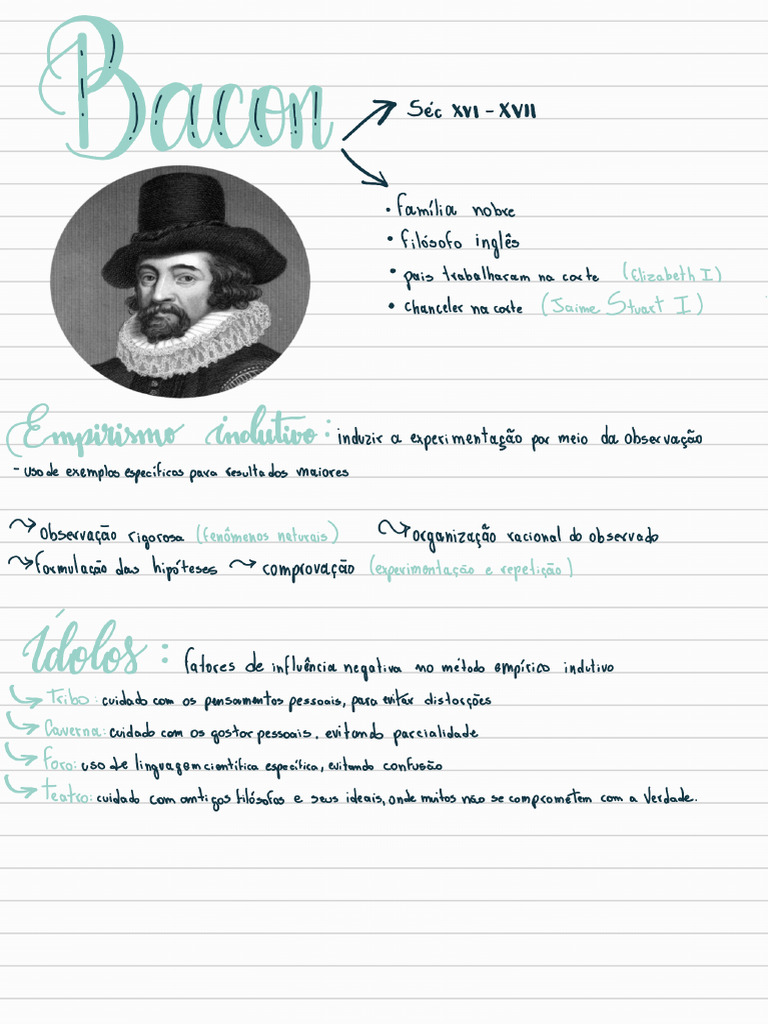 Bacon
Séc XVI - XVII
• família nobre
• filósofo inglês
• pais trabalharam na corte (Elizabeth I)
• chanceler na corte (Jaime Stuart I)
Empirismo indutivo: induzir a experimentação por meio da observação
- uso de exemplos específicos para resultados maiores
Observação rigorosa (fenômenos naturais) organização racional do observado
formulação das hipóteses comprovação (experimentação e repetição)
Ídolos: fatores de influência negativa no método empírico indutivo
Tribo: cuidado com os pensamentos pessoais, para evitar distorções
Caverna: cuidado com os gostos pessoais. evitando parcialidade
Foro: uso de linguagem científica específica, evitando confusão
Teatro: cuidado com antigos filósofos e seus ideais, onde muitos não se comprometem com a verdade.